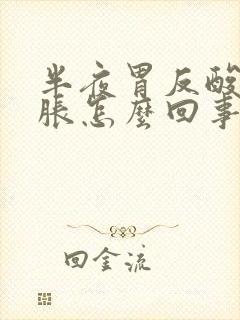 半夜胃反酸
胀怎麼回事
回金流